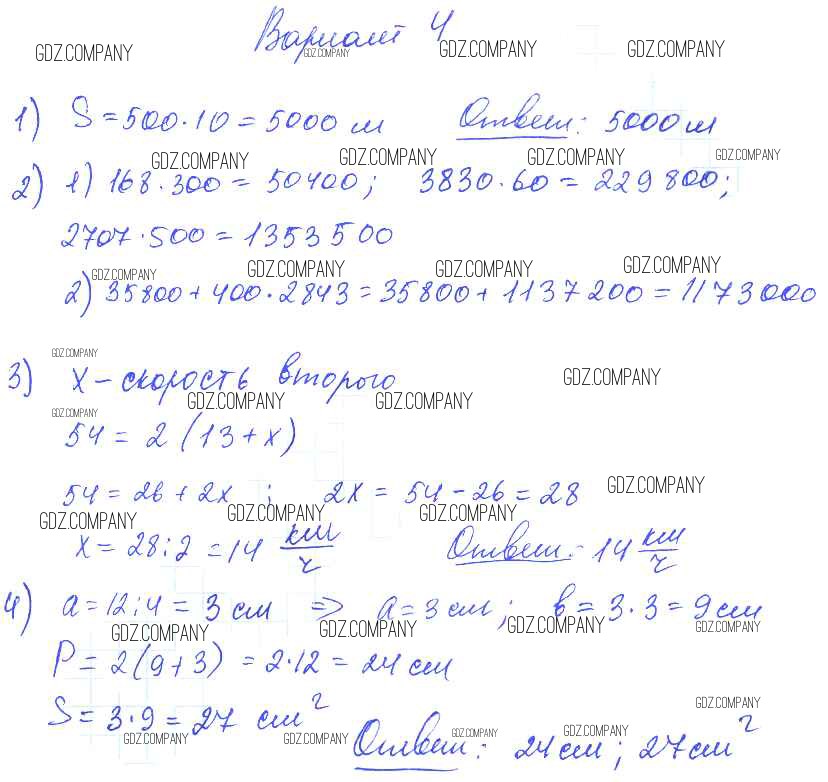 Вариант 4
GDZ.COMPANY GDZ.COMPANY GDZ.COMPANY GDZ.COMPANY
1) S = 500·10 = 5000 м Ответ: 5000 м
GDZ.COMPANY GDZ.COMPANY GDZ.COMPANY GDZ.COMPANY
2) 1) 168·300 = 50400; 3830·60 = 229800;
2707·500 = 1353500
GDZ.COMPANY GDZ.COMPANY GDZ.COMPANY GDZ.COMPANY
2) 35800 + 400·2843 = 35800 + 1137200 = 1173000
GDZ.COMPANY
3) x – скорость второго GDZ.COMPANY
GDZ.COMPANY GDZ.COMPANY GDZ.COMPANY
54 = 2 (13 + x)
54 = 26 + 2x ; 2x = 54 – 26 = 28 GDZ.COMPANY
GDZ.COMPANY GDZ.COMPANY GDZ.COMPANY
x = 28 : 2 = 14 км/ч Ответ: 14 км/ч
4) a = 12 : 4 = 3 см => a = 3 см; в = 3·3 = 9 см
GDZ.COMPANY GDZ.COMPANY GDZ.COMPANY GDZ.COMPANY
P = 2(9 + 3) = 2·12 = 24 см
S = 3·9 = 27 см² GDZ.COMPANY
GDZ.COMPANY GDZ.COMPANY GDZ.COMPANY GDZ.COMPANY
Ответ: 24 см; 27 см²